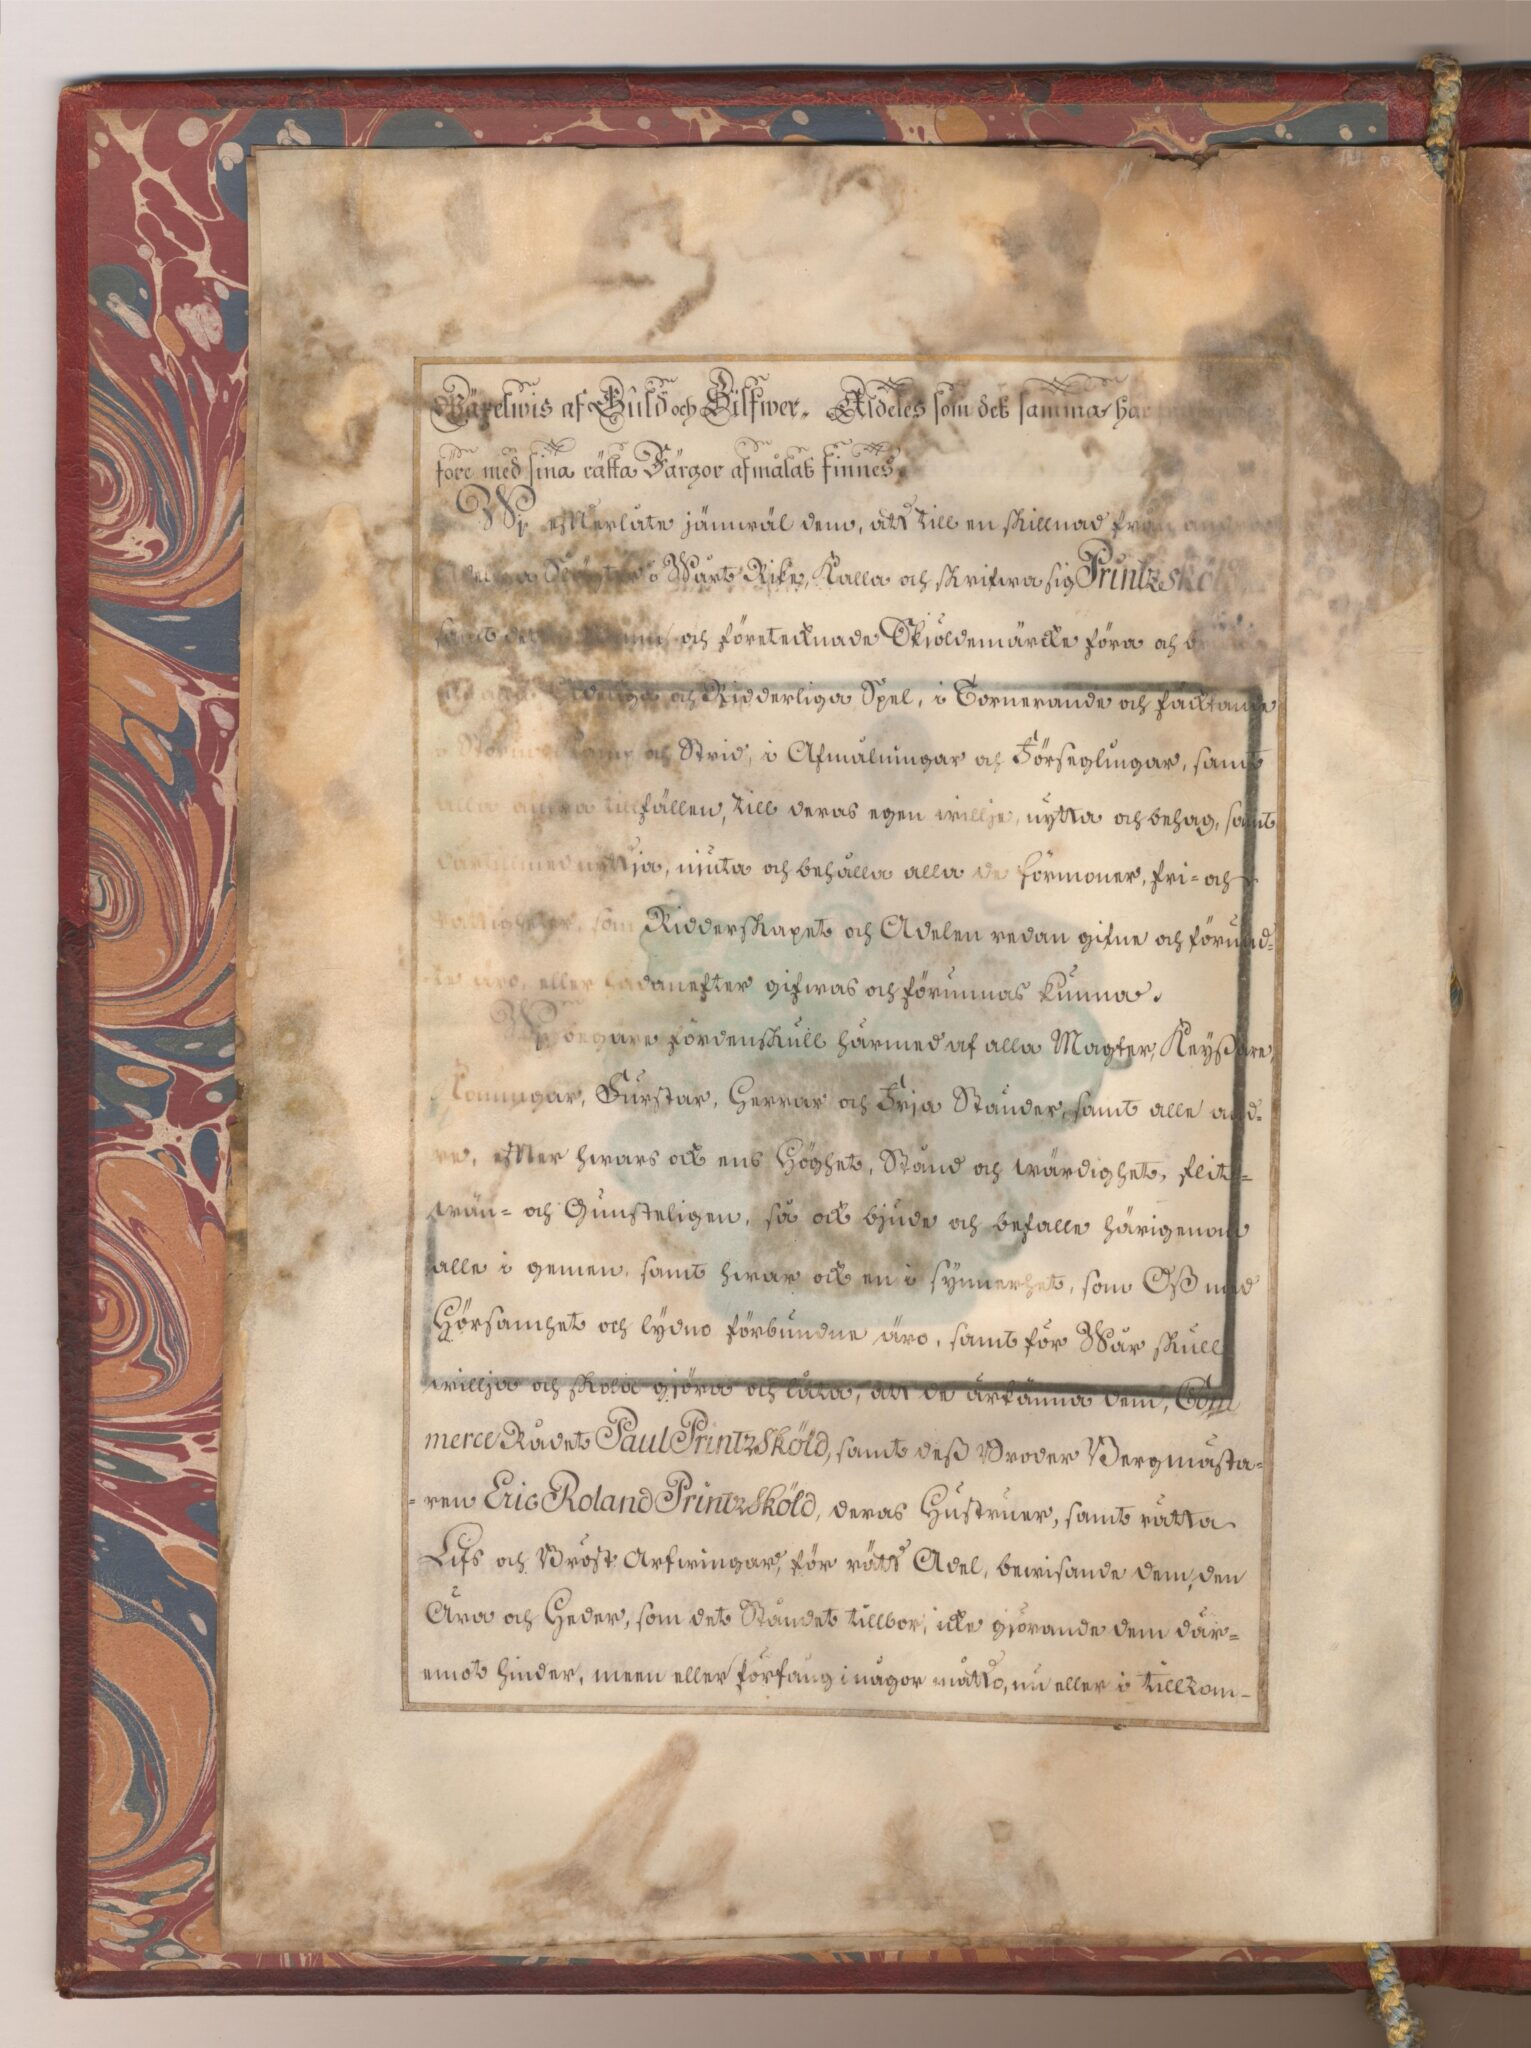 Wäxelwis af Guld och Silfwer. Aldeles som det samma har
före med sina rätta Färgor afmålat finnes.
Wj efterlåte jämwäl dem, att till en skillnad från
Wårt Rike, Kalla och skrifwa sig Printzsköld,
samt och företecknade Skiöldemärcke föra och
och Ridderliga Spel, i Tornerande och fäcktande
och Strid, i Afmålningar och Förseglingar, samt
alla andra tillfällen, till deras egen willje, nytta och behag, samt
nyttja, niuta och behålla alla de förmoner, fri- och
rättigheter, som Ridderskapet och Adelen redan gifne och förund-
te äro, eller hädanefter gifwas och förunnas kunna.
Wj begäre fördenskull härmed af alla Magter, Keyßare,
Konungar, Furstar, Herrar och Frja Ständer, samt alle and-
re, efter hwars ock ens Höghet, Stånd och wärdighet, flit-
wän- och Gunsteligen, så ock bjude och befalle härigenom
alle i gemen, samt hwar ock en i synnerhet, som Oß med
Hörsamhet och lydno förbundne äro, samt för Wår skull
willja och skola gjöra och låta, att de ärkänna dem, Com
merce Rådet Paul Printzsköld, samt deß Broder Bergmästa-
-ren Eric Roland Printzsköld, deras Hustruer, samt rätta
Lifs och Bröst Arfwingar, för rätt Adel, bewisande dem, den
Ära och Heder, som det Ståndet tillbör, icke gjörande dem där-
emot hinder, meen eller förfång i någor måtto, nu eller i tillkom-